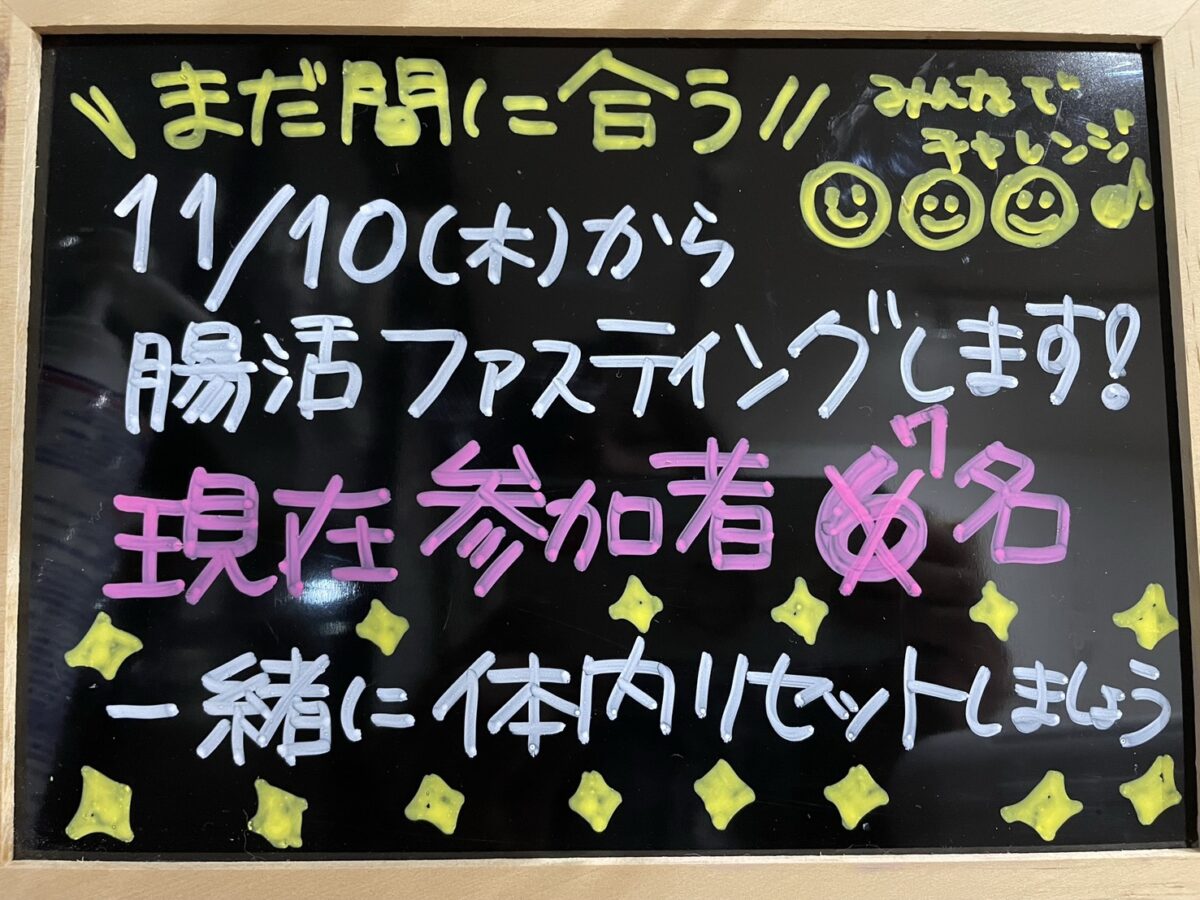 \\まだ間に合う//
みんなで
チャレンジ♪
11/10(木)から
腸活ファスティングします!
現在参加者7名
一緒に体内リセットしましょう